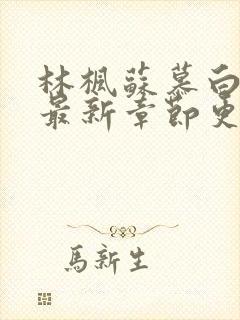 林楓蘇慕白
最新章節更
馬新生